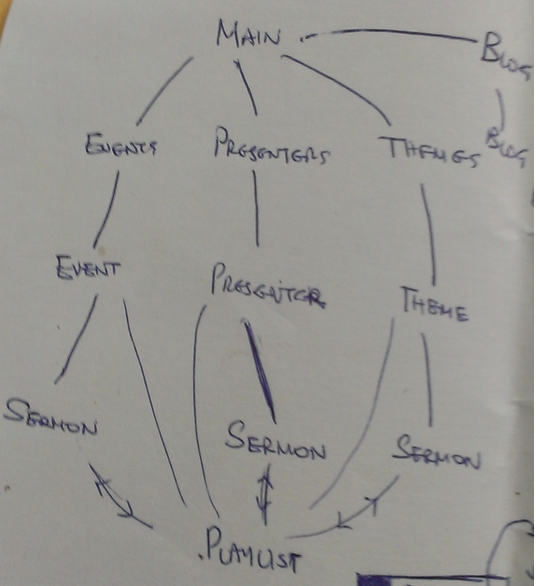 MAIN
BLOG
EVENTS PRESENTERS THEMES BLOG
EVENT PRESENTER THEME
SERMON SERMON SERMON
PLAYLIST